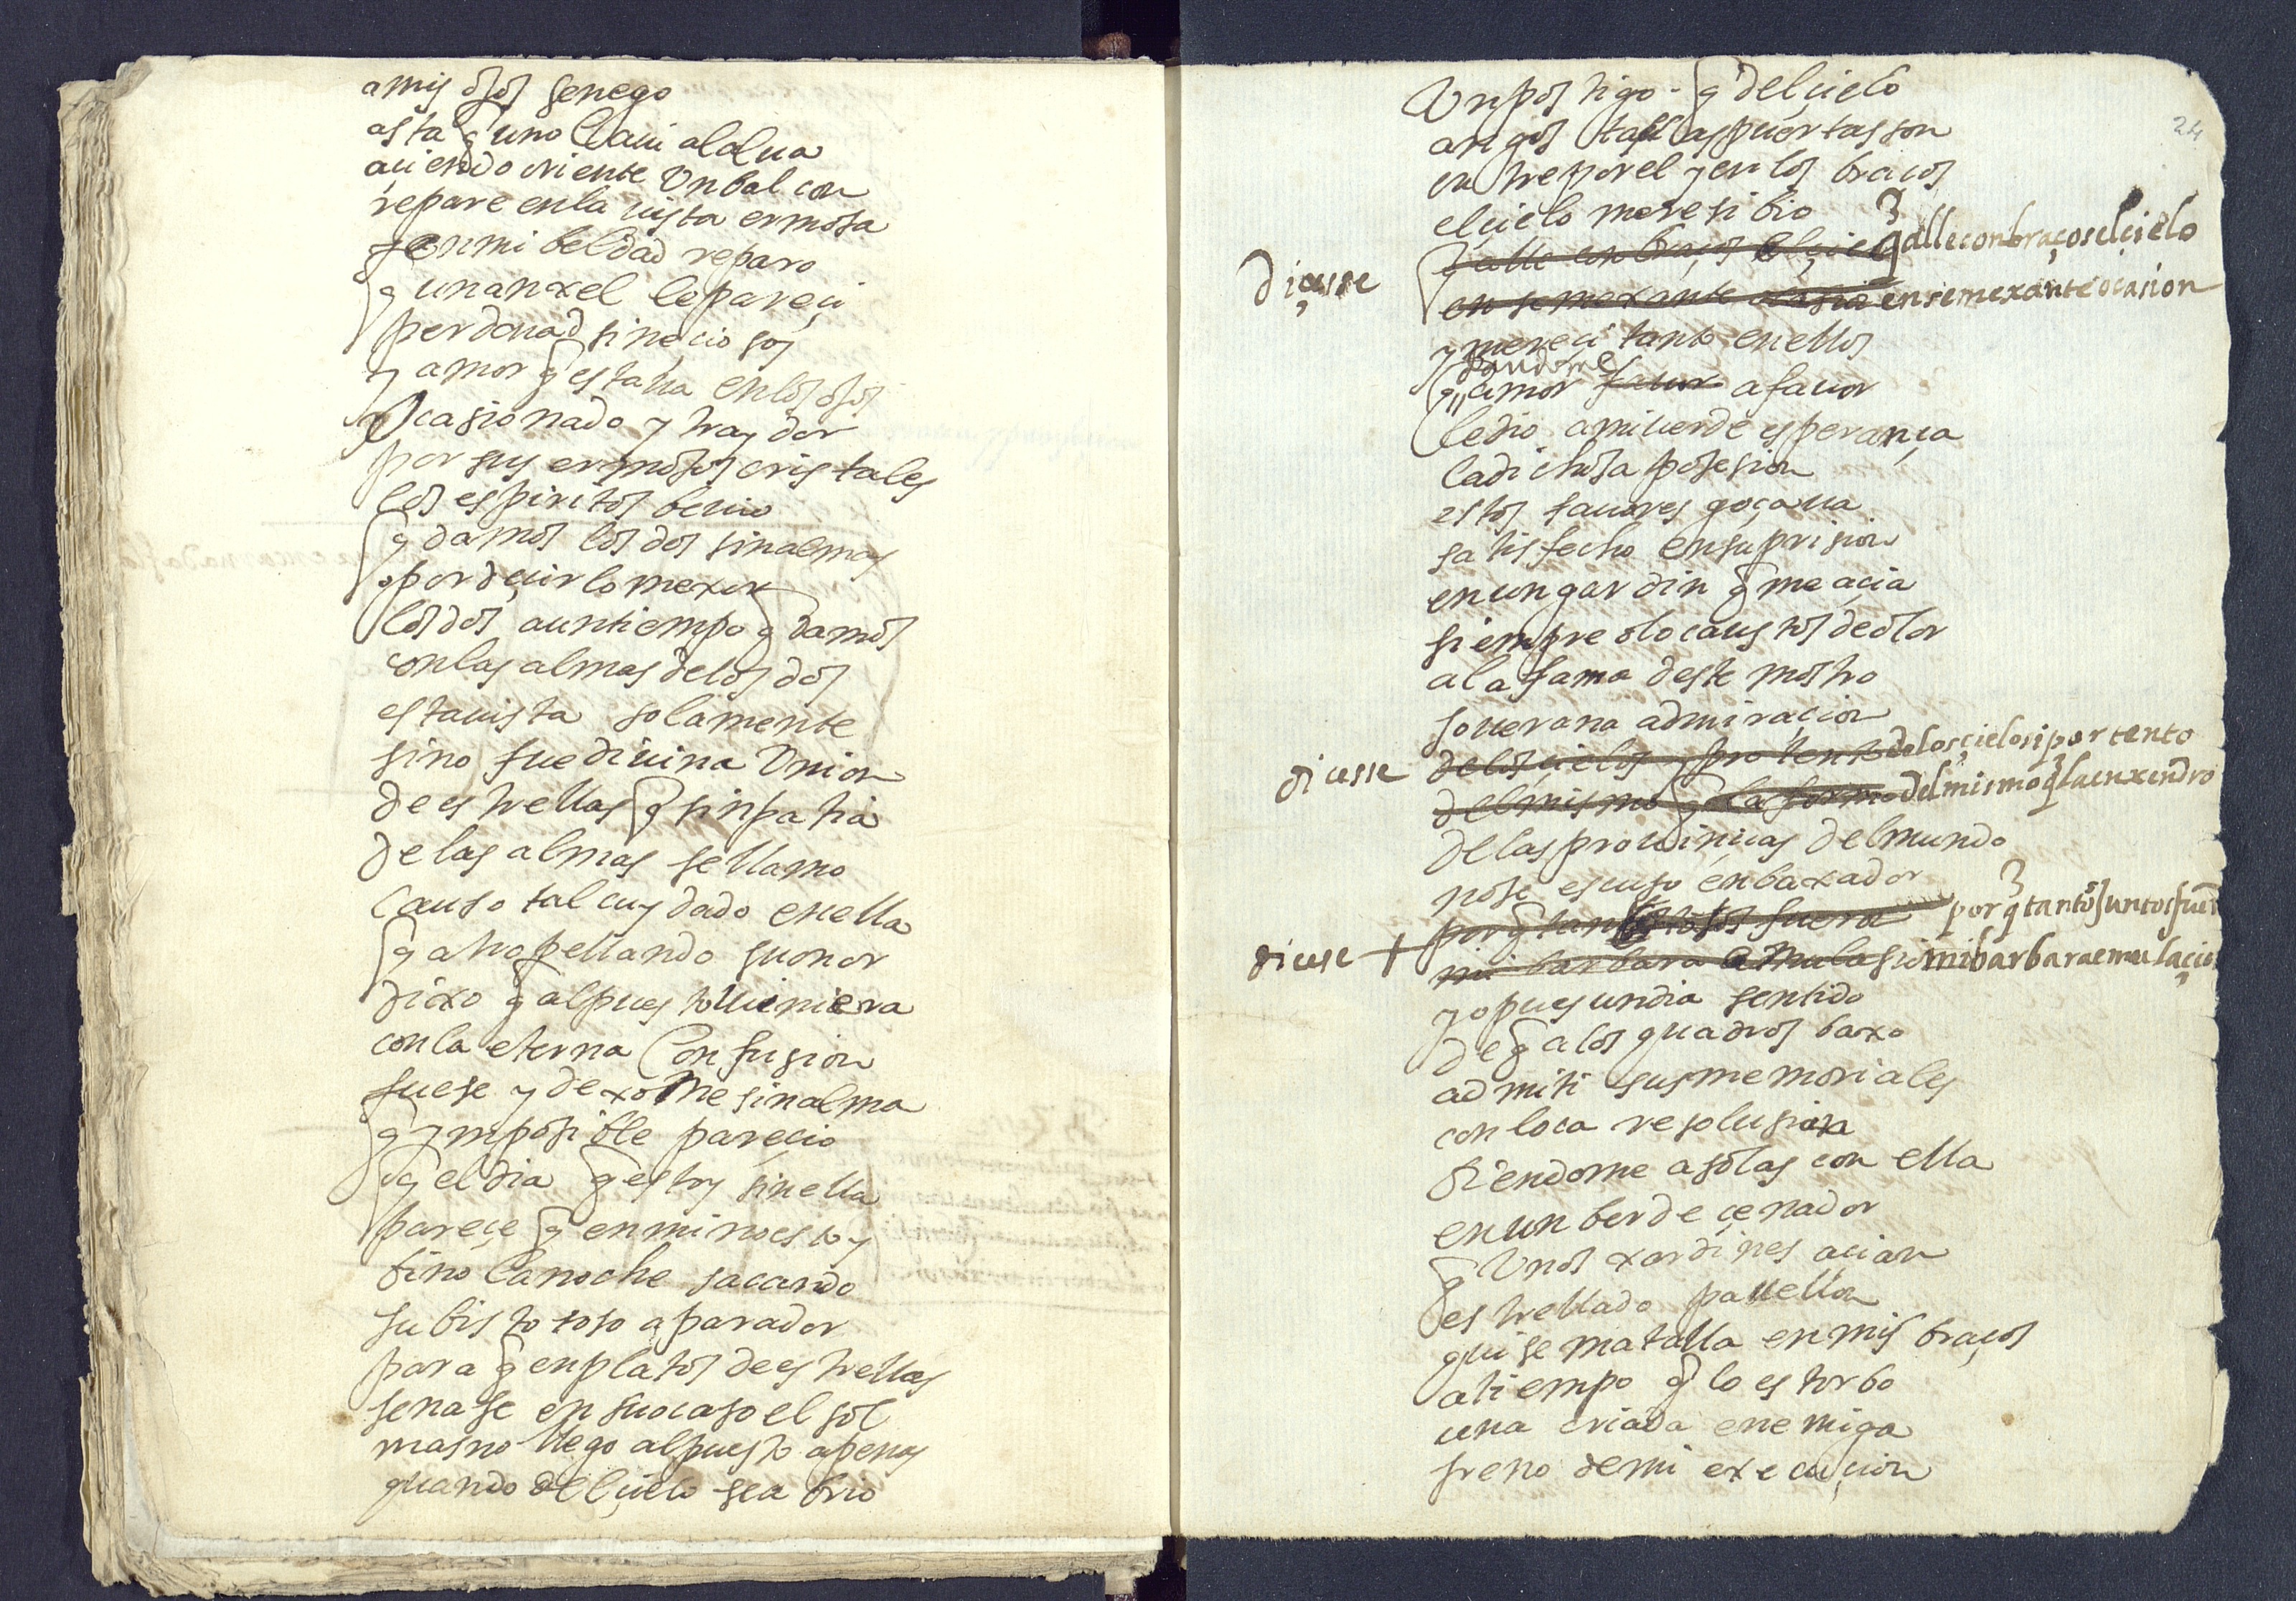 amis ojos se nego
asta q una la vi al alva
aciendo oriente Un balcon
repare en la vista ermosa
y en mi beldad reparo
q un anxel le pareçi
perdonad si neçio soy
y amor q estava en los ojos
Ocasionado y traydor
por sus ermosos cristales
los espiritos bevio
q damos los dos sin almas
o por deçirlo mexor
los dos a un tiempo q damos
con las almas de los dos
esta vista solamente
sino fue divina Union
de estrellas q sinpatia
de las almas se llamo
Causo tal cuydado en ella
q atropellando su onor
dixo q al puesto viniera
con la eterna Confusion
fuese y dexome sin alma
q ynposible pareçio
q el dia q estoy sin ella
pareçe q en mi no estoy
bino la noche sacando
su bistoso aparador
para q en platos de estrellas
senase en su ocaso el sol
mas no llego al puesto apenas
quando del çielo se abrio
24
Un postigo q del çielo
angostas las puertas son
entre por el y en los braços
el çielo me resibio
diçesse
q alle con braços el çielo q alle con braços el çielo
en semexante ocasion en semexante ocasion
y mereçi tanto en ellos
dandome
q amor favor a favor
le dio a mi verde esperança
la dichosa posesion
estos favores goçava
satisfecho en su prision
en un gardin q me açia
siempre olocaustos de olor
a la fama deste mostro
soverana admiraçion
dicesse
de los çielos y protento de los çielos i portento
del mismo q la formo del mismo q la enxendro
de las provinçias del mundo
no se escuso enbaxador
porq tantos fueron porq tantos juntos fuero
dicese +
mi barbara emulasio mi barbara emulaçion
yo pues un dia sentido
de q a los quadros baxo
admiti sus memoriales
con loca resolusion
biendome a solas con ella
en un berde çenador
q Unos xardines açian
estrellado pavellon
quise matalla en mis braços
a tiempo q lo estorbo
una criada enemiga
freno de mi execuçion